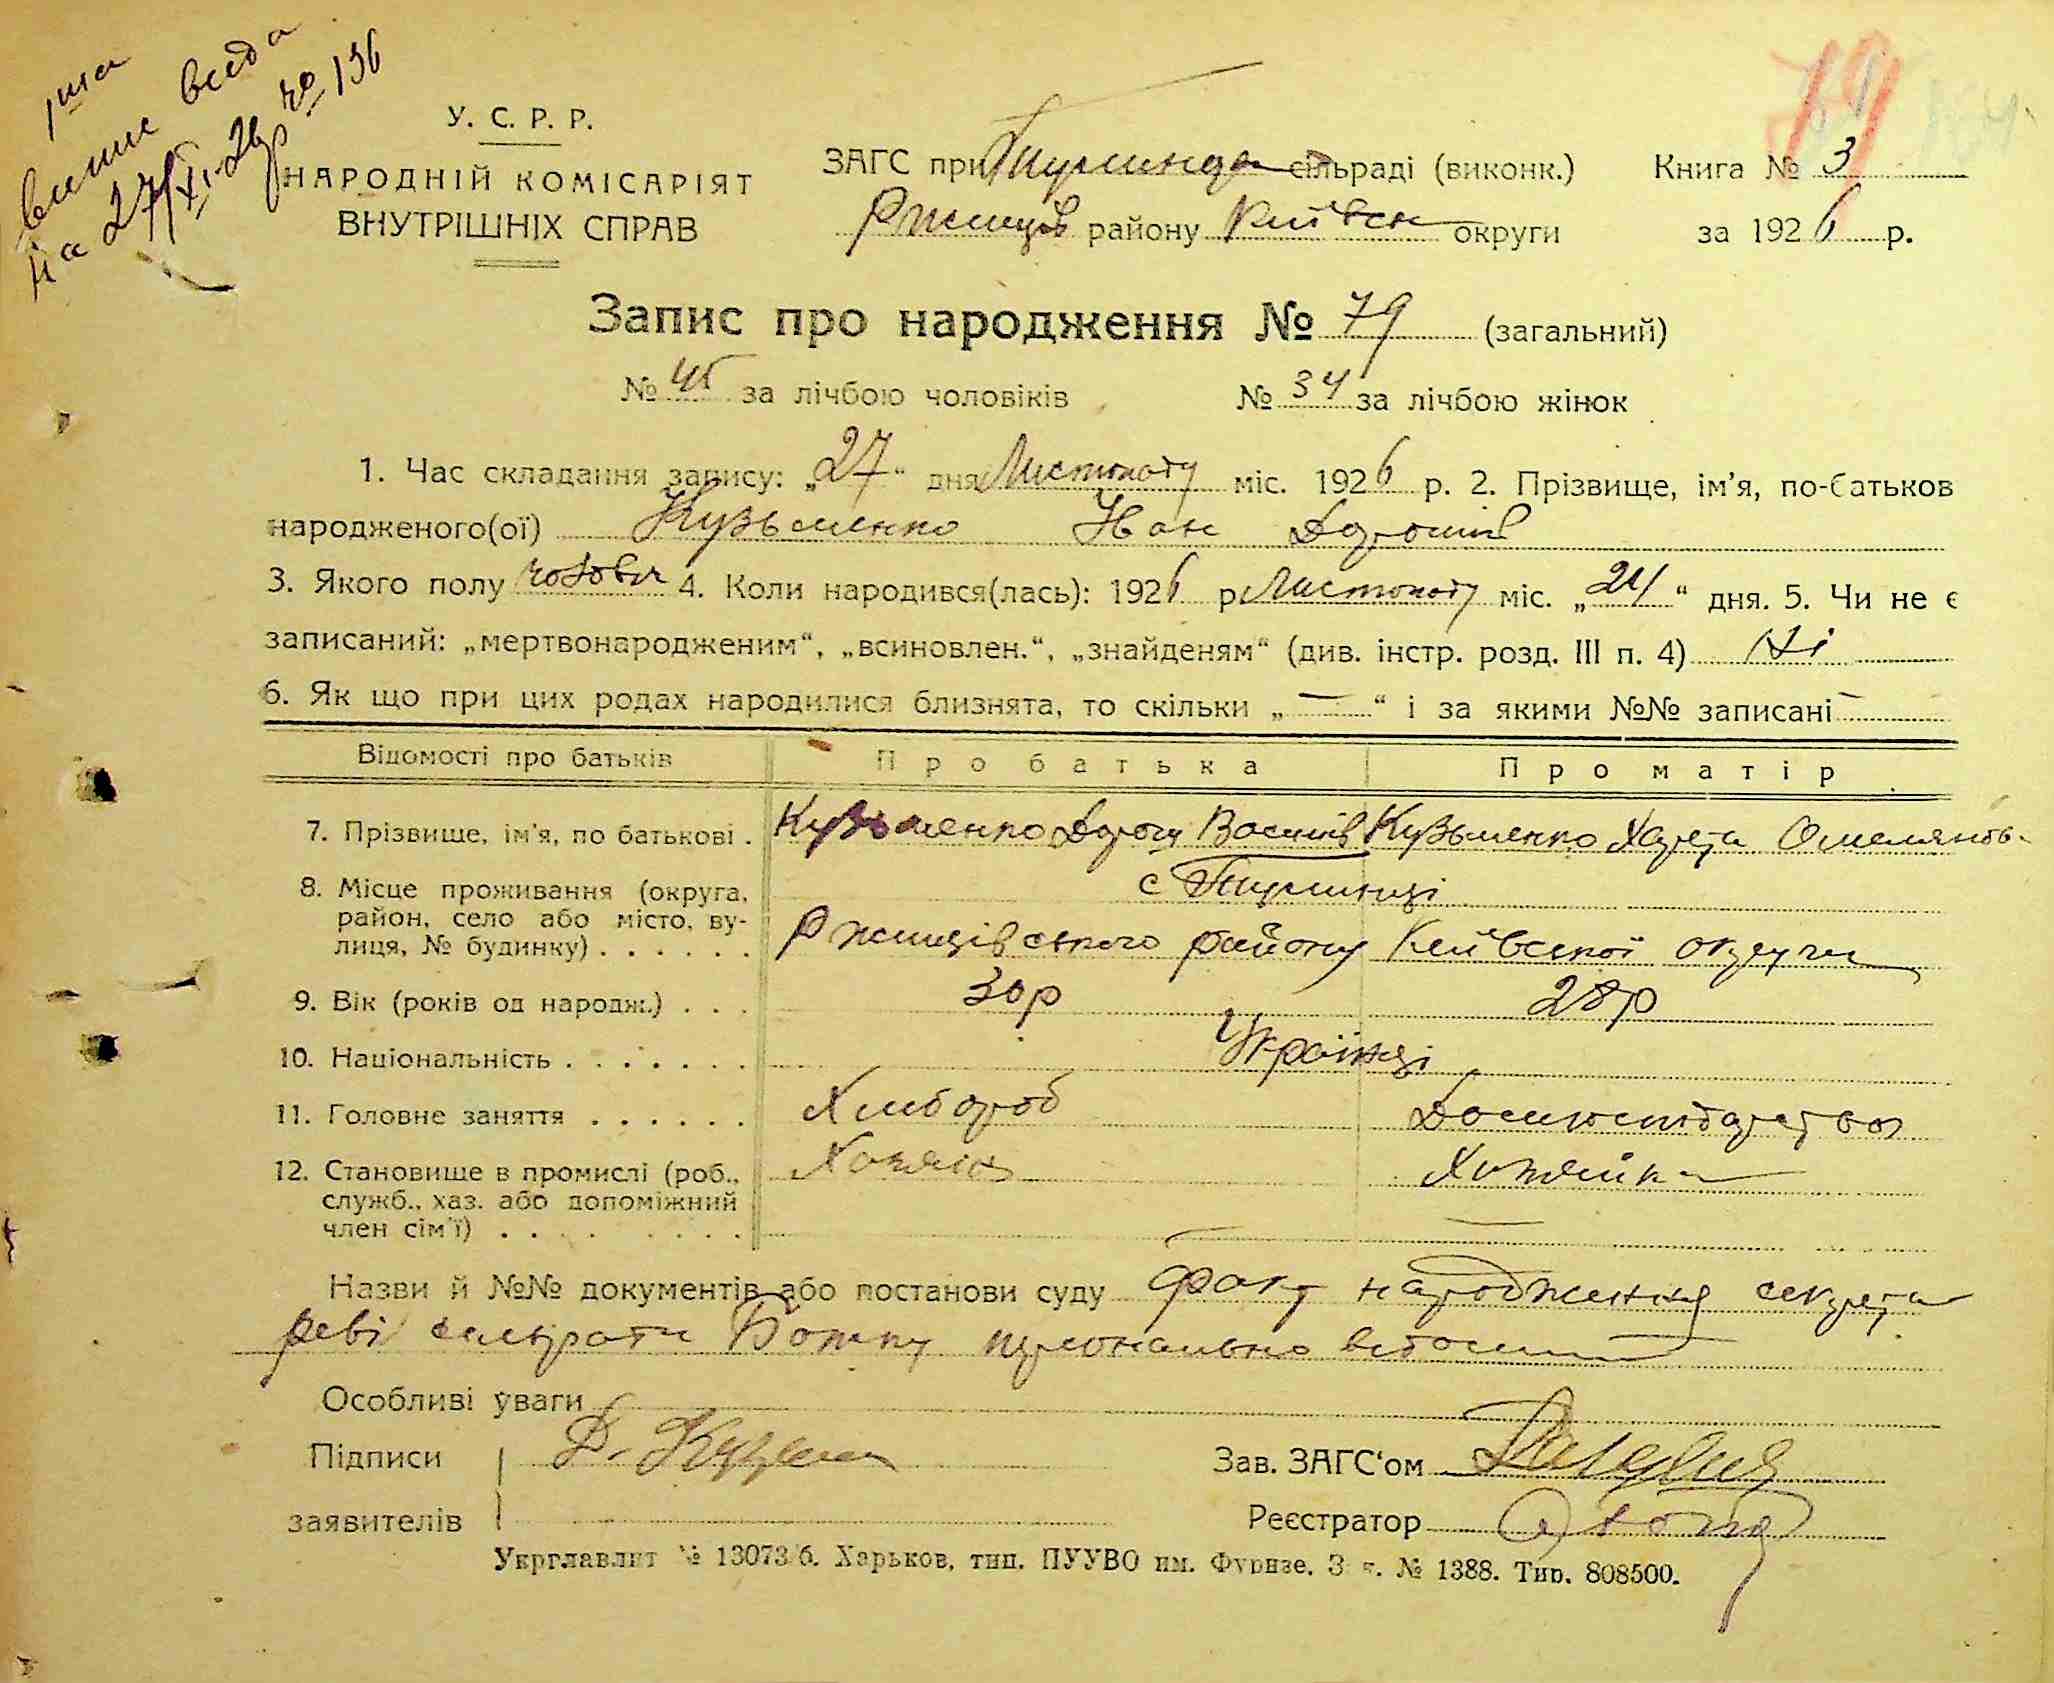 на 27/XI-26р № 136
У. С. Р. Р.
НАРОДНІЙ КОМІСАРІЯТ
ВНУТРІШНІХ СПРАВ
ЗАГС при сільраді (виконк.)
Ржищів району Київськ округи
Книга № 3
за 1926 р.
79
Запис про народження № 79 (загальний)
№ 45 за лічбою чоловіків № 34 за лічбою жінок
1. Час складання запису: „27“ дня Листопаду міс. 1926 р. 2. Прізвище, ім’я, по-батьков
народженого(ої) Кузьменко Іван Дорошів
3. Якого полу чолович 4. Коли народився(лась): 1926 р Листопаду міс. „24“ дня. 5. Чи не є
записаний: „мертвонародженим“, „всиновлен.“, „знайденям“ (див. інстр. розд. III п. 4) Ні
6. Як що при цих родах народилися близнята, то скільки „—“ і за якими №№ записані —
Відомості про батьків Про батька Про матір
7. Прізвище, ім’я, по батькові . Кузьменко Дорош Василів Кузьменко Омелянов
8. Місце проживання (округа,
район, село або місто, ву-
лиця, № будинку) . . . . . .
с
Ржищівського району Київської округи
9. Вік (років од народж.) . . . 30р 28р
10. Національність . . . . . . . Українці
11. Головне заняття . . . . . . Хлібороб Домогосподарство
12. Становище в промислі (роб.,
служб., хаз. або допоміжний
член сім’ї) . . . . . . . .
Хазяїн Хазяйка
Назви й №№ документів або постанови суду Факт народження секрета
реві сільради персонально відомий
Особливі уваги
Підписи Д. Кузьмен
Зав. ЗАГС‘ом
заявителів
Реєстратор
Укрглавлит № 13073/б. Харьков, тип. ПУУВО им. Фрунзе. З к. № 1388. Тир. 808500.